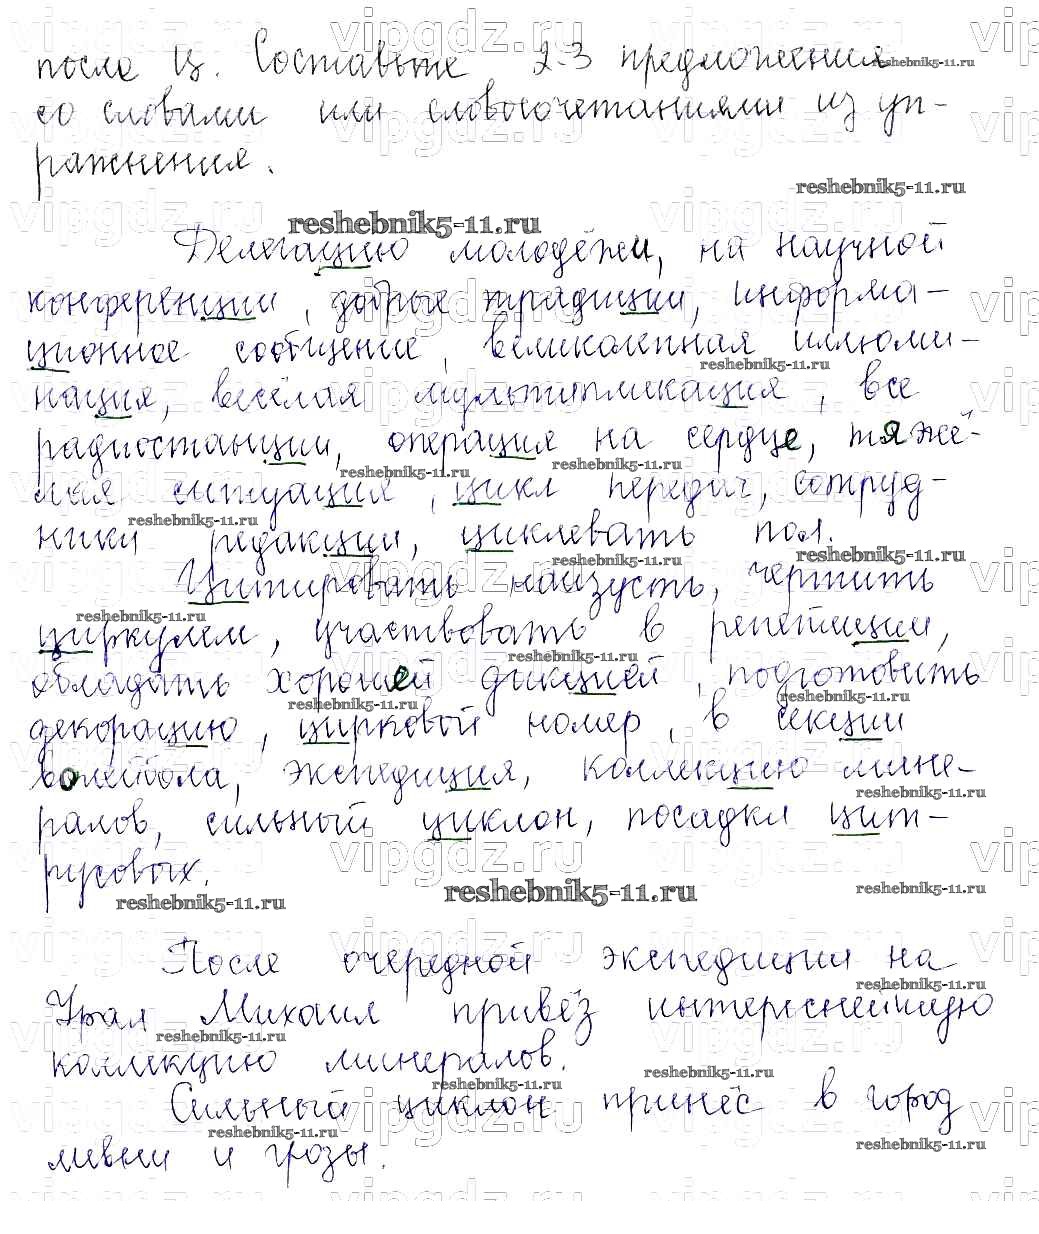 после Ц. Составьте 2-3 предложения
со словами или словосочетаниями из уп-
ражнения.
Делегацию молодёжи, на научной
конференции, добрые традиции, информа-
ционное сообщение, великолепная иллюми-
нация, весёлая мультипликация, все
радиостанции, операция на сердце, тяжё-
лая ситуация, цикл передач, сотруд-
ники редакции, циклевать пол.
Цитировать наизусть, чертить
циркулем, участвовать в репетиции,
обладать хорошей дикцией, подготовить
декорацию, цирковой номер, в секции
волейбола, экспедиция, коллекцию мине-
ралов, сильный циклон, посадки цит-
русовых.
После очередной экспедиции на
Урал Михаил привёз интереснейшую
коллекцию минералов.
Сильный циклон принёс в город
ливни и грозы.
vipgdz.ru
reshebnik5-11.ru